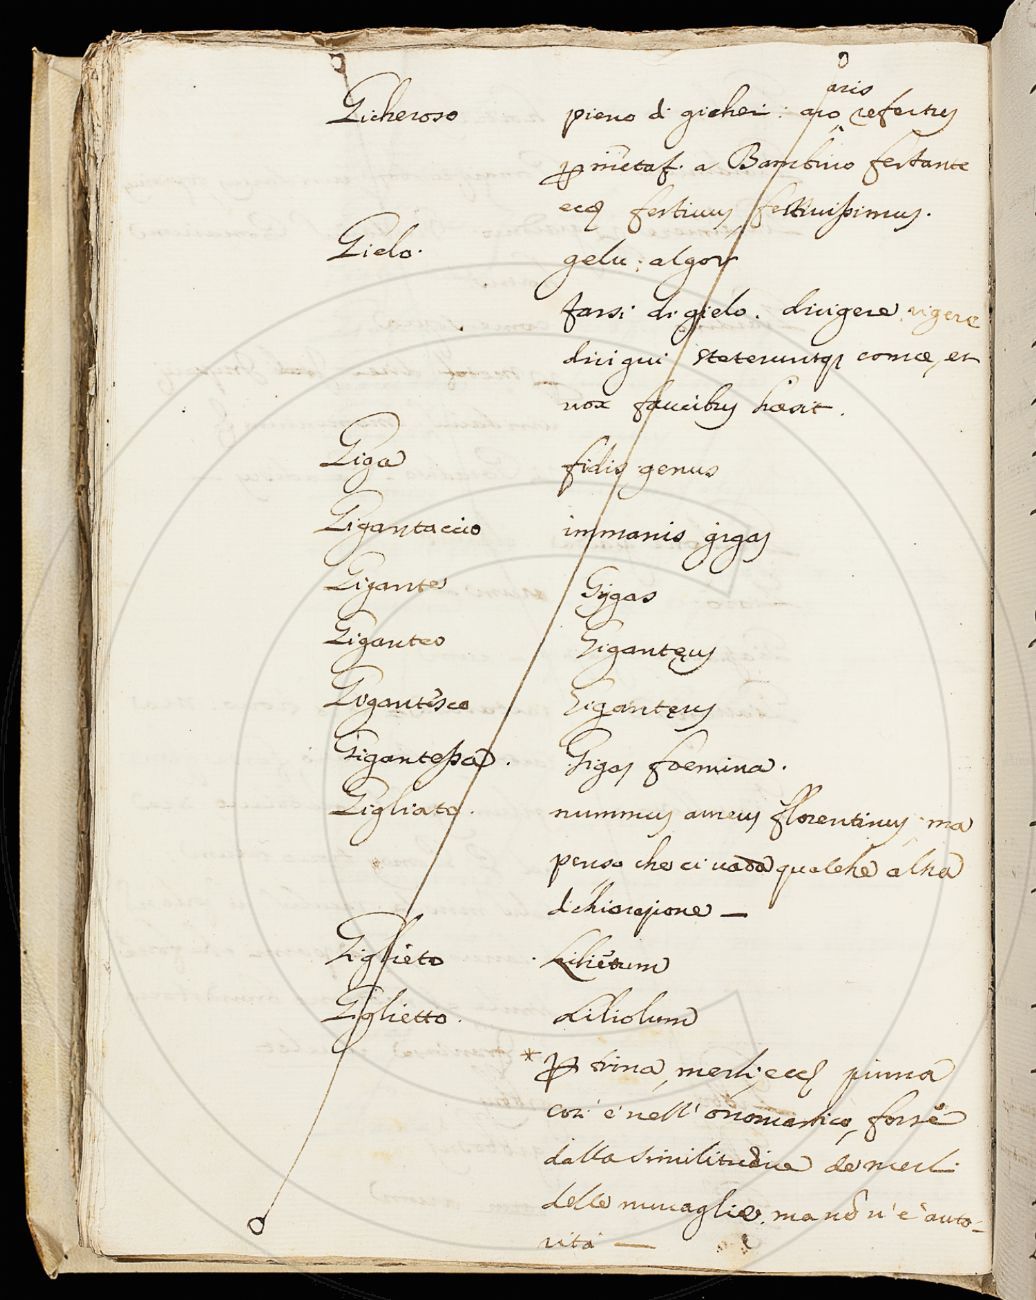 aris
Gicheroso pieno di gicheri : aro refertus
p metaf. a Bambino festante
ecc festiuus festiuissimus.
Gielo. gelu ; algor
farsi di gielo. dirigere rigere
dirigui steteruntq; comæ, et
vox faucibus hæsit.
Giga fidis genus
Gigantaccio immanis gigas
Gigante Gygas
Giganteo Giganteus
Gigantesco Giganteus
Gigantessa. Gigas foemina.
Gigliato. nummus aureus florentinus, ma
penso che ci vada qualche altra
dichiarazione —
Giglieto Lilietum
Giglietto. Liliolum
* p trina, merli, ecc pinna
cosi è nell' onomastico, forse
dalla similitudine de merli
delle muraglie, ma nō v' è auto-
rità —